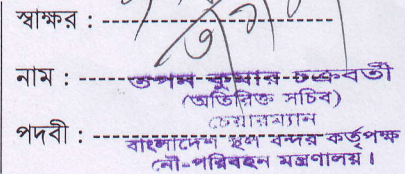 স্বাক্ষর :
নাম : তপন কুমার চক্রবর্তী
(অতিরিক্ত সচিব)
চেয়ারম্যান
পদবী : বাংলাদেশ স্থল বন্দর কর্তৃপক্ষ
নৌ-পরিবহন মন্ত্রণালয়।